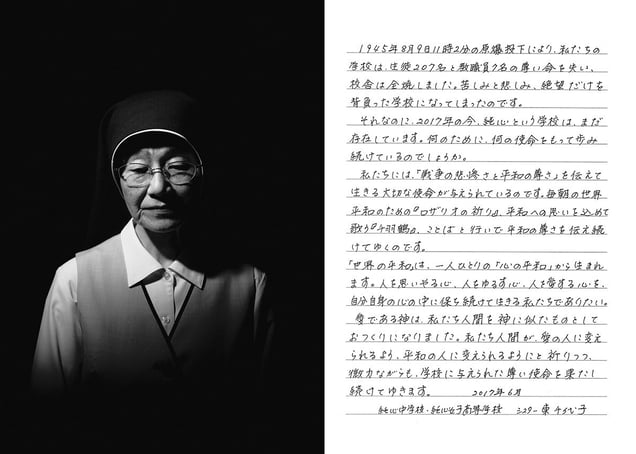 1945年8月9日11時2分の原爆投下により、私たちの
学校は、生徒207名と教職員7名の尊い命を失い、
校舎は全焼しました。苦しみと悲しみ、絶望だけを
背負った学校になってしまったのです。
それなのに、2017年の今、純心という学校は、まだ
存在しています。何のために、何の使命をもって歩み
続けているのでしょうか。
私たちには、「戦争の悲惨さと平和の尊さ」を伝えて
生きる大切な使命が与えられているのです。毎朝の世界
平和のための『ロザリオの祈り』、平和への思いを込めて
歌う『千羽鶴』、ことばと行いで平和の尊さを伝え続
けてゆくのです。
「世界の平和」は、一人ひとりの「心の平和」から生まれ
ます。人を思いやる心、人をゆるす心、人を愛する心を、
自分自身の心の中に保ち続けて生きる私たちでありたい。
愛である神は、私たち人間を神に似たものとして
おつくりになりました。私たち人間が、愛の人に変え
られるよう、平和の人に変えられるようにと祈りつつ、
微力ながらも、学校に与えられた尊い使命を果たし
続けてゆきます。 2017年6月
純心中学校・純心女子高等学校 シスター 東